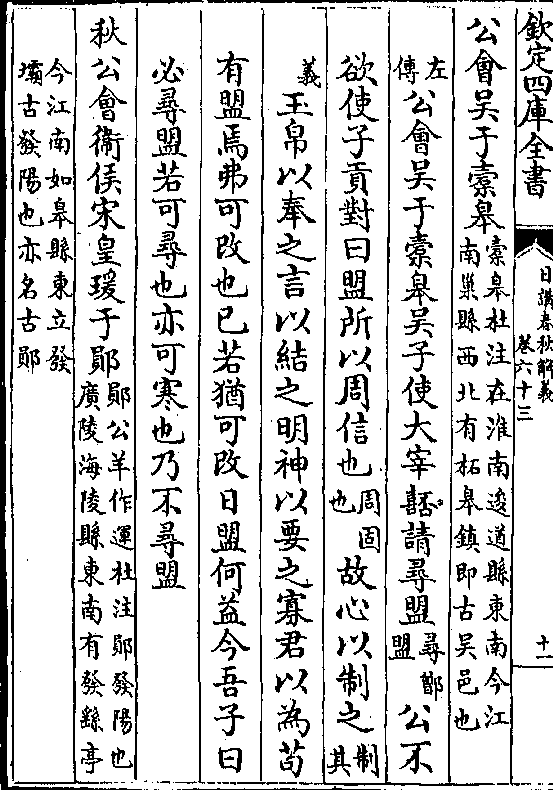 欽定四庫全書
日講春秋解義
卷六十三
十一
公會吳于橐皋
橐皋杜注在淮南逡遒縣東南今江
南巢縣西北有柘皋鎮即古吳邑也
左
傳
公會吳于橐皋吳子使大宰嚭請尋盟
尋鄫
盟
公不
欲使子貢對曰盟所以周信也
周固
也
故心以制之
制
其
義
玉帛以奉之言以結之明神以要之寡君以為茍
有盟焉弗可改也已若猶可改日盟何益今吾子曰
必尋盟若可尋也亦可寒也乃不尋盟
秋公會衛侯宋皇瑗于鄖
鄖公羊作運杜注鄖發陽也
廣陵海陵縣東南有發繇亭
今江南如皋縣東立發
壩古發陽也亦名古鄖